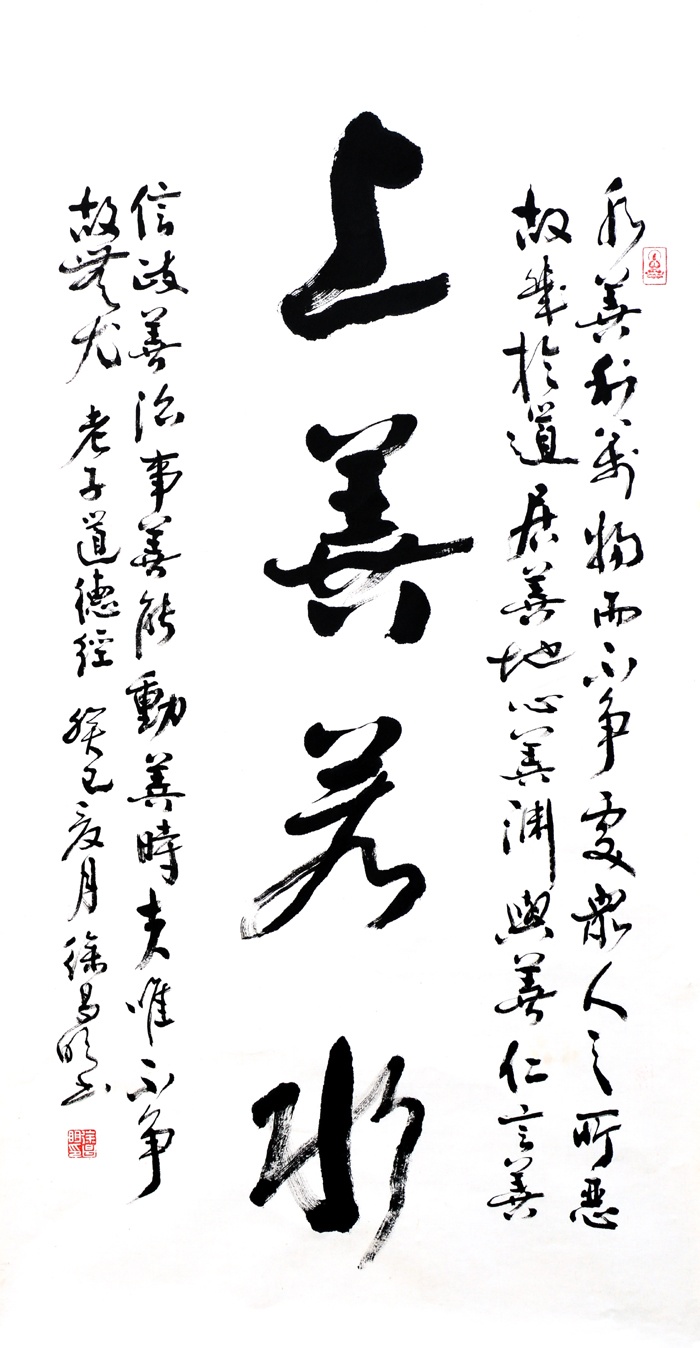 水善利萬物而不争處衆人之所惡
故幾於道居善地心善渊與善仁言善
上善若水
信政善治事善能動善時夫唯不争
故無尤 老子道德經 癸巳夏月 徐昌明书